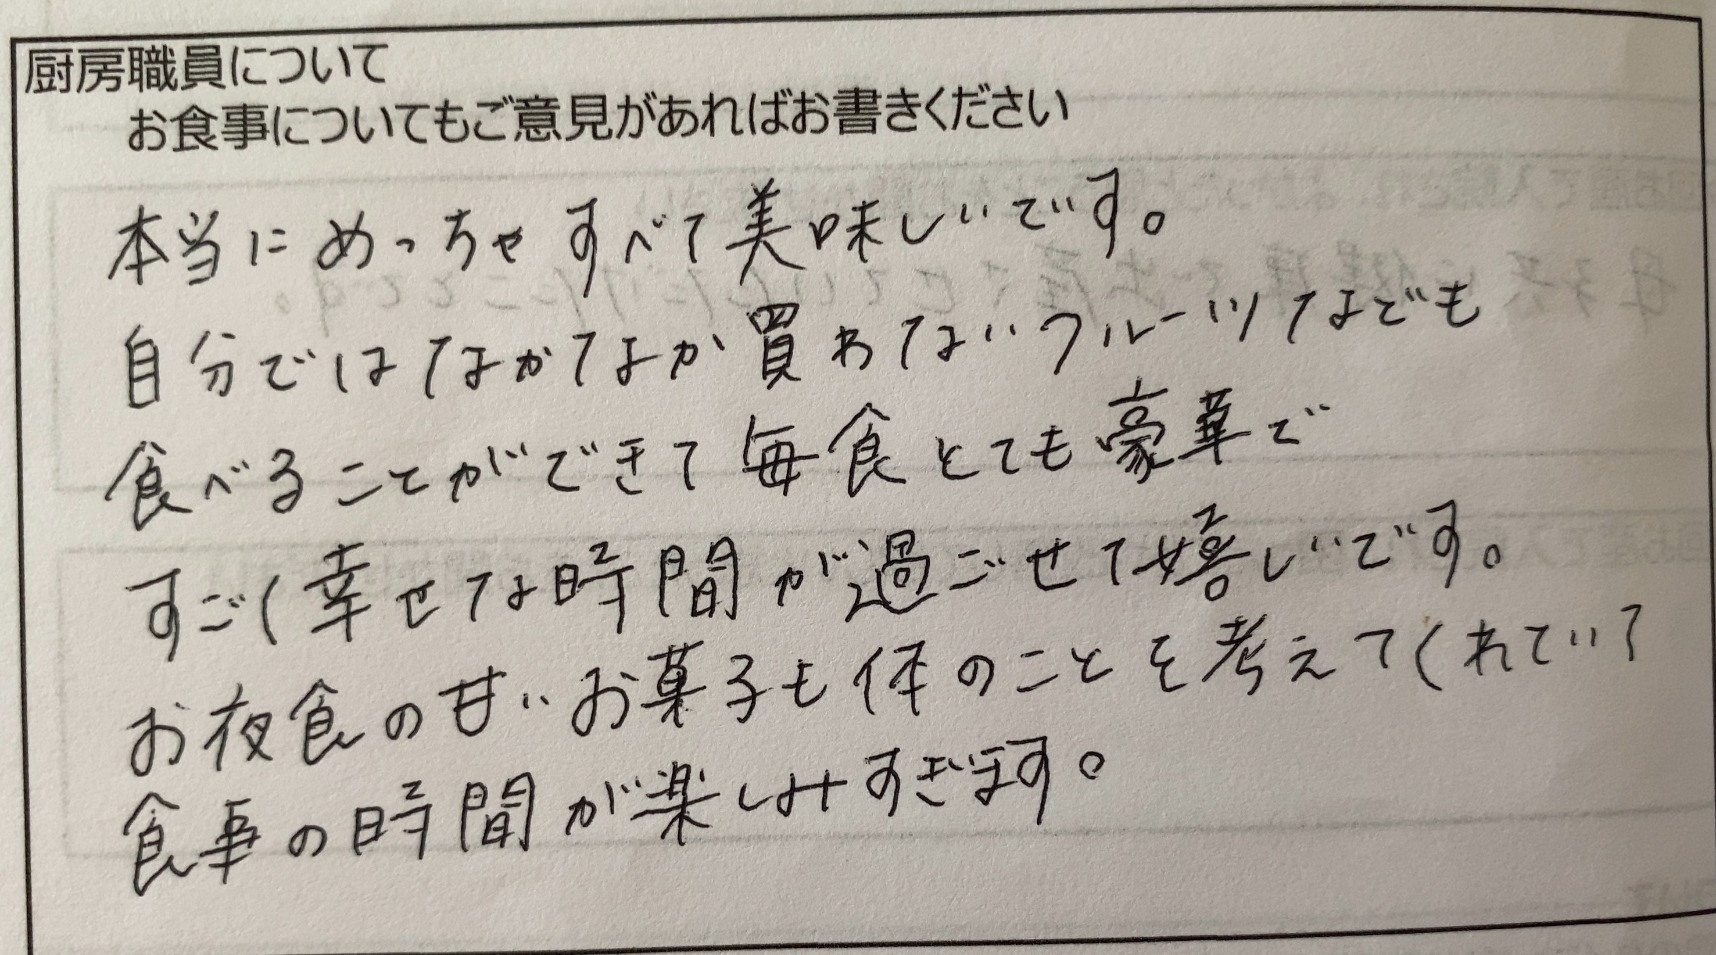 厨房職員について
お食事についてもご意見があればお書きください
本当にめっちゃすべて美味しいです。
自分ではなかなか買わないフルーツなども
食べることができて毎食とても豪華で
すごく幸せな時間が過ごせて嬉しいです。
お夜食の甘いお菓子も体のことを考えてくれていて
食事の時間が楽しみすぎます。